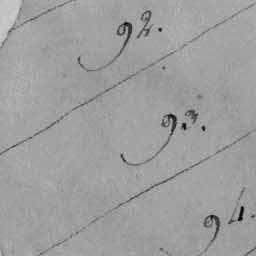 92.
93.
94.